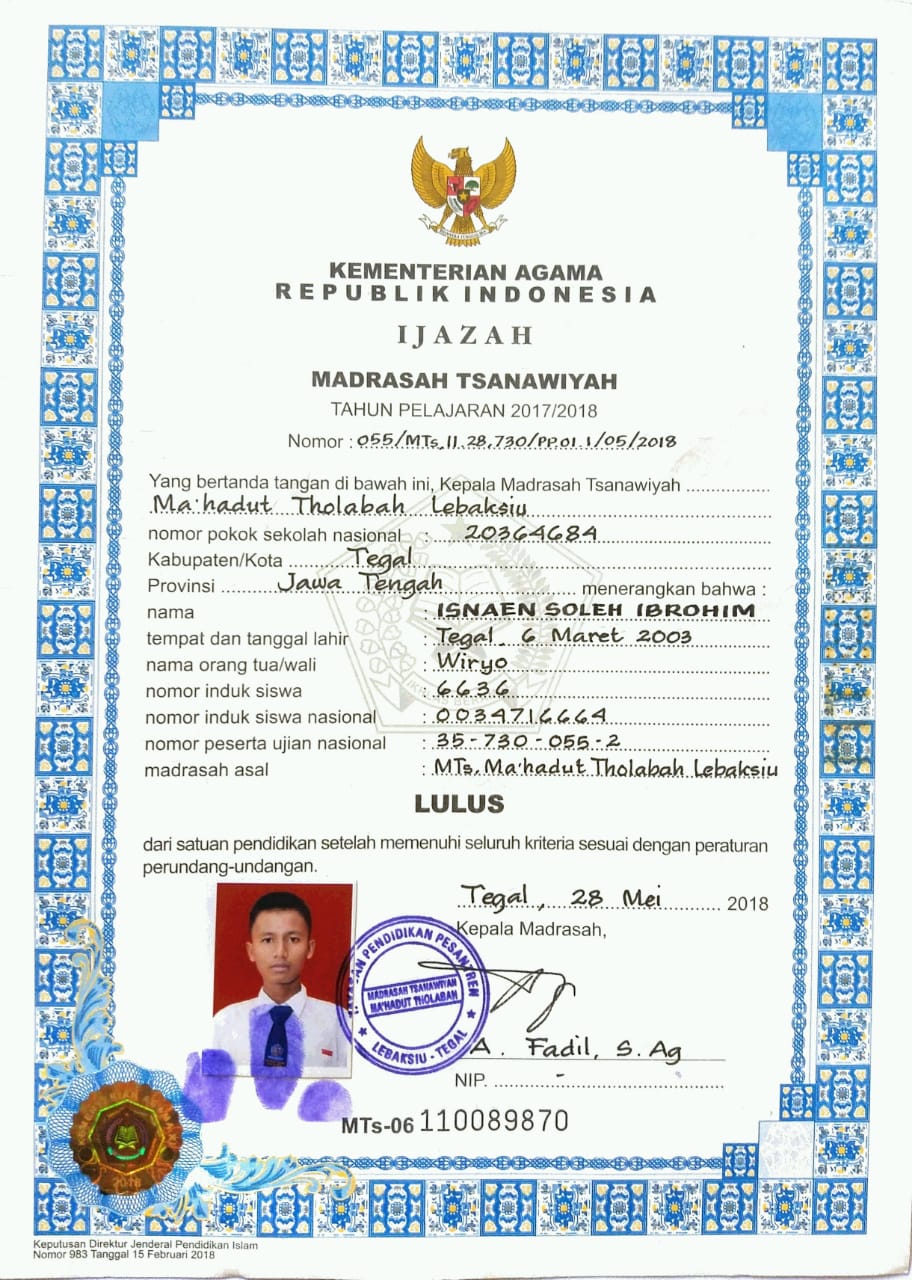 KEMENTERIAN AGAMA
REPUBLIK INDONESIA
IJAZAH
MADRASAH TSANAWIYAH
TAHUN PELAJARAN 2017/2018
Nomor : 055/MTs.11.28.730/PP.01.1/05/2018
Yang bertanda tangan di bawah ini, Kepala Madrasah Tsanawiyah
Ma'hadut Tholabah Lebaksiu
nomor pokok sekolah nasional : 20364684
Kabupaten/Kota Tegal
Provinsi Jawa Tengah menerangkan bahwa :
nama : ISNAEN SOLEH IBROHIM
tempat dan tanggal lahir : Tegal, 6 Maret 2003
nama orang tua/wali : Wiryo
nomor induk siswa : 6636
nomor induk siswa nasional : 0034716664
nomor peserta ujian nasional : 35-730-055-2
madrasah asal : MTs. Ma'hadut Tholabah Lebaksiu
LULUS
dari satuan pendidikan setelah memenuhi seluruh kriteria sesuai dengan peraturan
perundang-undangan.
Tegal, 28 Mei 2018
Kepala Madrasah,
PENDIDIKAN PESANTREN
MADRASAH TSANAWIYAH
MA'HADUT THOLABAH
LEBAKSIU - TEGAL
A. Fadil, S.Ag
NIP. -
MTs-06 110089870
2018
Keputusan Direktur Jenderal Pendidikan Islam
Nomor 983 Tanggal 15 Februari 2018